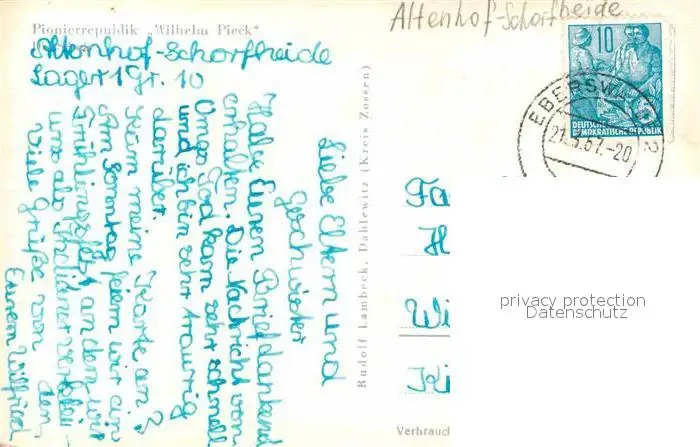 Altenhof-Schorfheide
Pionierrepublik „Wilhelm Pieck"
Altenhof-Schorfheide
Lager 1 Gr. 10
Liebe Eltern und
Geschwister
Habe Euren Brief dankend
erhalten. Die Nachricht von
Omas Tod kam sehr schnell
und ich bin sehr traurig
darüber.
Kam meine Karte an?
Am Sonntag feiern wir ein
Frühlingsfest an dem wir
uns als Indianer verklei-
Viele Grüße von
Eurem Wilfried
Rudolf Lambeck, Dahlewitz (Kreis Zossen)
10
DEUTSCHE
DEMOKRATISCHE REPUBLIK
EBERSW
-20
Fa
H
Wi
Ki
privacy protection
Datenschutz
Verbrauc